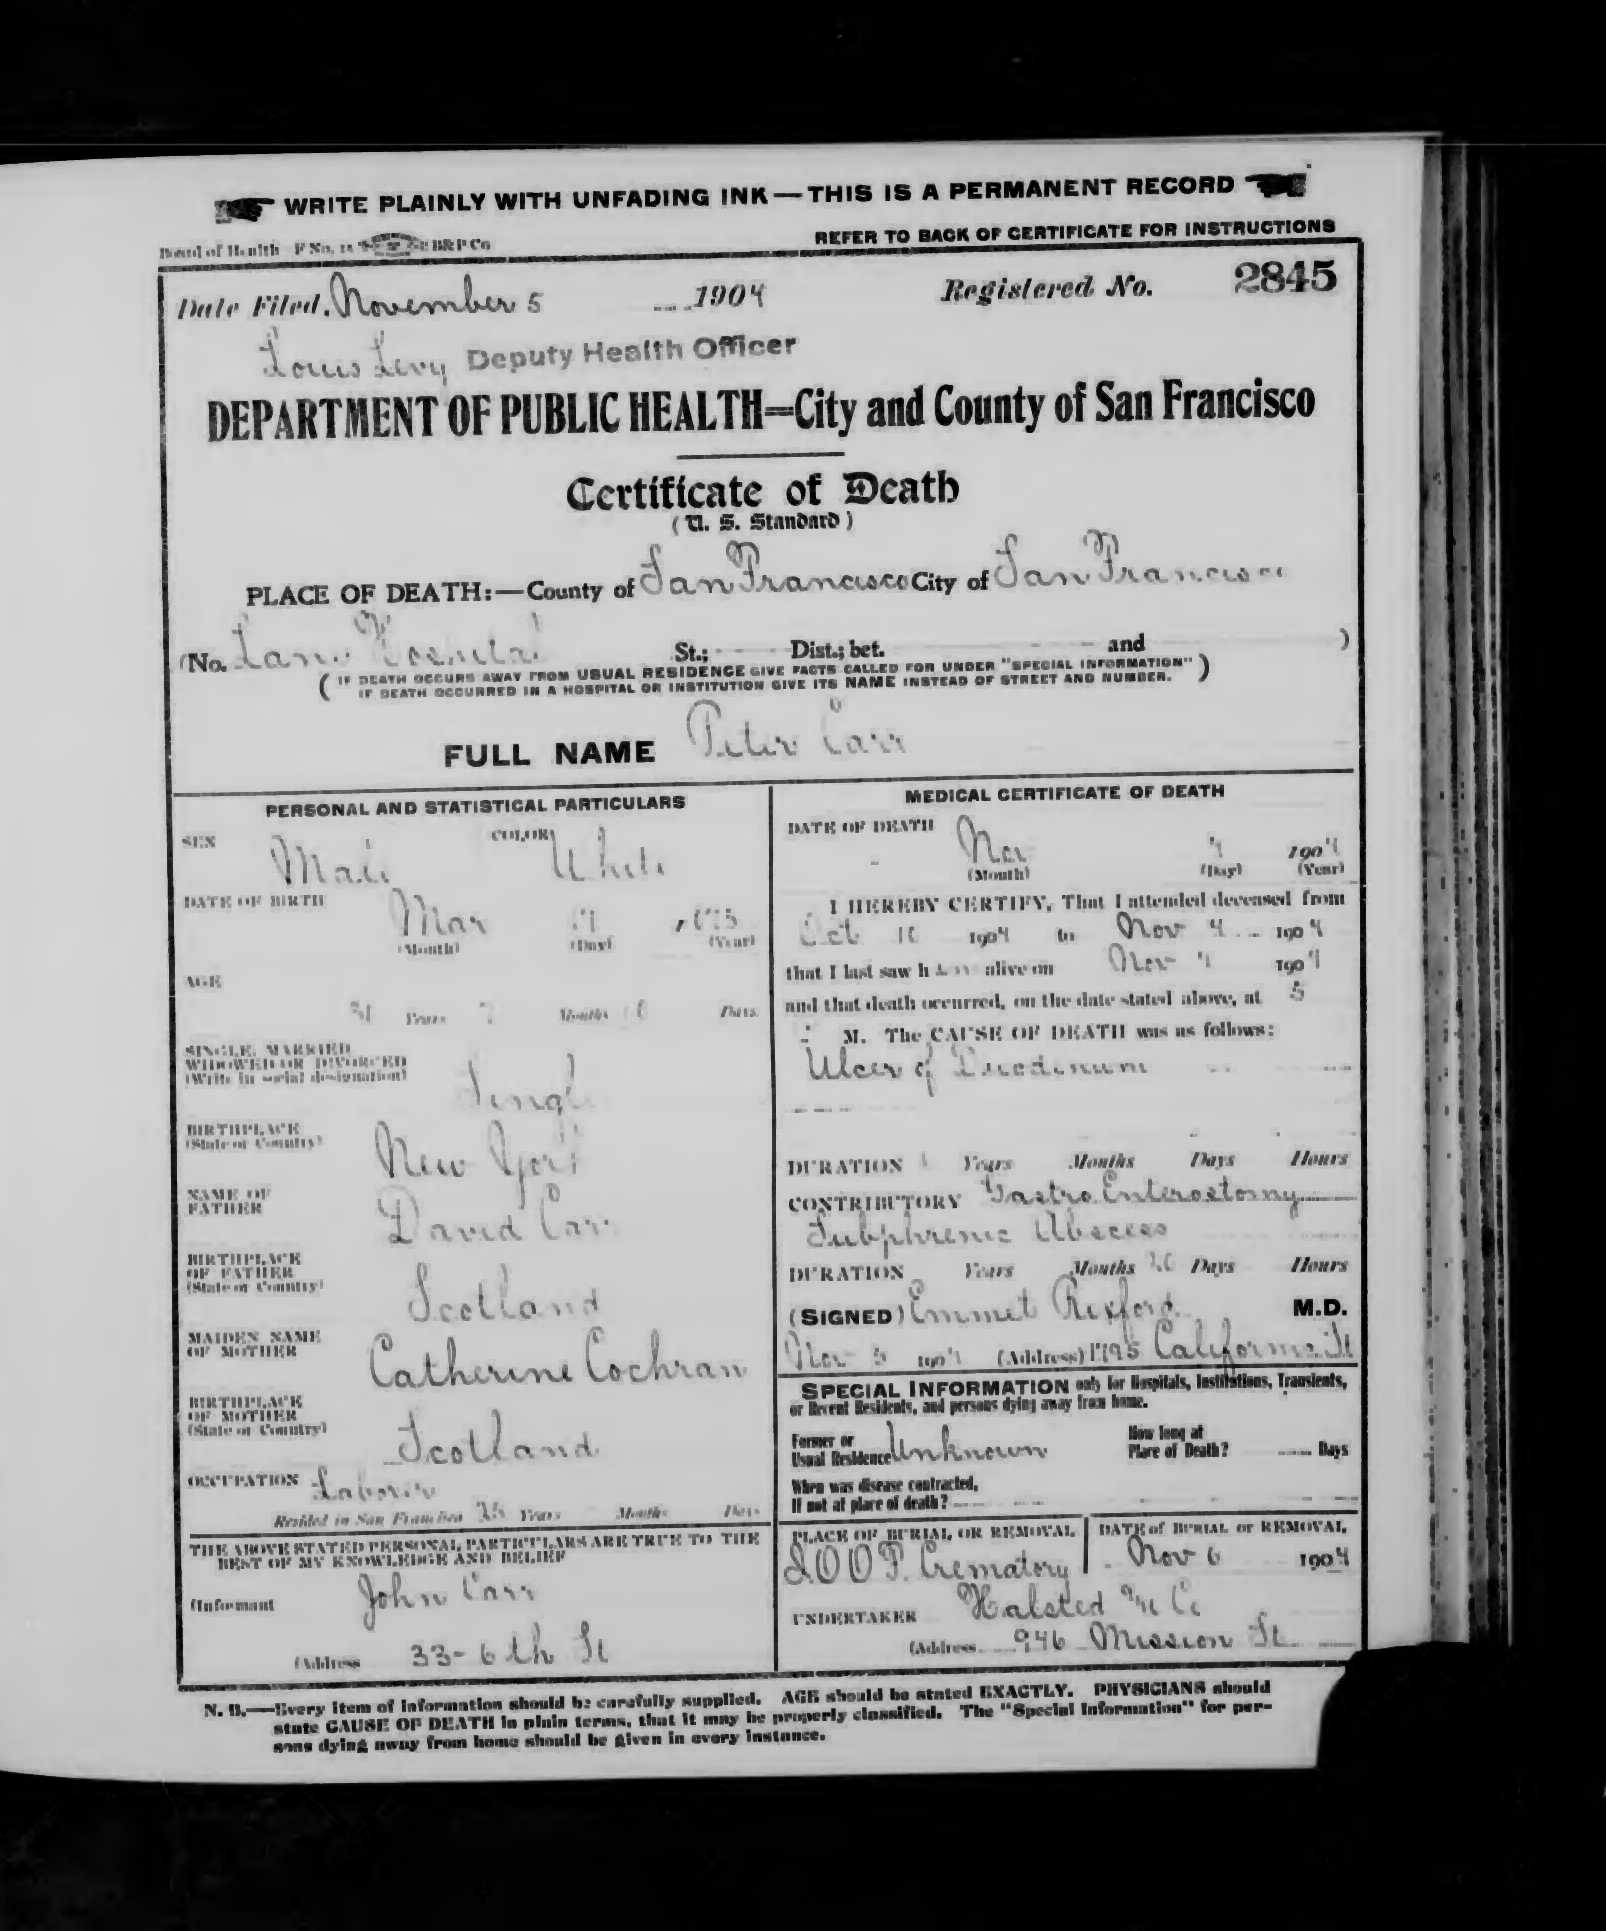 WRITE PLAINLY WITH UNFADING INK — THIS IS A PERMANENT RECORD
Board of Health F No. B&P Co
REFER TO BACK OF CERTIFICATE FOR INSTRUCTIONS
Date Filed, November 5 1904 Registered No. 2845
Louis Levy Deputy Health Officer
DEPARTMENT OF PUBLIC HEALTH=City and County of San Francisco
Certificate of Death
(U. S. Standard)
PLACE OF DEATH:—County of San Francisco City of San Francisco
(No. Lane Hospital St.; Dist.; bet. and )
(IF DEATH OCCURS AWAY FROM USUAL RESIDENCE GIVE FACTS CALLED FOR UNDER "SPECIAL INFORMATION"
IF DEATH OCCURRED IN A HOSPITAL OR INSTITUTION GIVE ITS NAME INSTEAD OF STREET AND NUMBER.)
FULL NAME Peter Carr
PERSONAL AND STATISTICAL PARTICULARS
SEX Male COLOR White
DATE OF BIRTH Mar
(Month) (Day) (Year)
AGE
Years Months Days
SINGLE, MARRIED
WIDOWED OR DIVORCED
(Write in social designation) Single
BIRTHPLACE
(State or Country) New York
NAME OF
FATHER David Carr
BIRTHPLACE
OF FATHER
(State or Country) Scotland
MAIDEN NAME
OF MOTHER Catherine Cochran
BIRTHPLACE
OF MOTHER
(State or Country) Scotland
OCCUPATION Laborer
Resided in San Francisco 25 Years Months Days
THE ABOVE STATED PERSONAL PARTICULARS ARE TRUE TO THE
BEST OF MY KNOWLEDGE AND BELIEF
(Informant John Carr
(Address 33-6th St
MEDICAL CERTIFICATE OF DEATH
DATE OF DEATH
Nov 4 1904
(Month) (Day) (Year)
I HEREBY CERTIFY, That I attended deceased from
Oct 1904 to Nov 4 1904
that I last saw him alive on Nov 4 1904
and that death occurred, on the date stated above, at 5
M. The CAUSE OF DEATH was as follows:
Ulcer of Duodenum
DURATION Years Months Days Hours
CONTRIBUTORY Gastro Enterostomy
Subphrenic Abscess
DURATION Years Months Days Hours
(SIGNED) Emmet Rixford M.D.
Nov 5 1904 (Address) 1795 California St
SPECIAL INFORMATION only for Hospitals, Institutions, Transients,
or Recent Residents, and persons dying away from home.
Former or
Usual Residence Unknown
How long at
Place of Death? Days
When was disease contracted,
If not at place of death?
PLACE OF BURIAL OR REMOVAL
I.O.O.F. Crematory
DATE of BURIAL or REMOVAL
Nov 6 1904
UNDERTAKER Halsted & Co
(Address 946 Mission St
N. B.—Every item of information should be carefully supplied. AGE should be stated EXACTLY. PHYSICIANS should
state CAUSE OF DEATH in plain terms, that it may be properly classified. The "Special Information" for per-
sons dying away from home should be given in every instance.